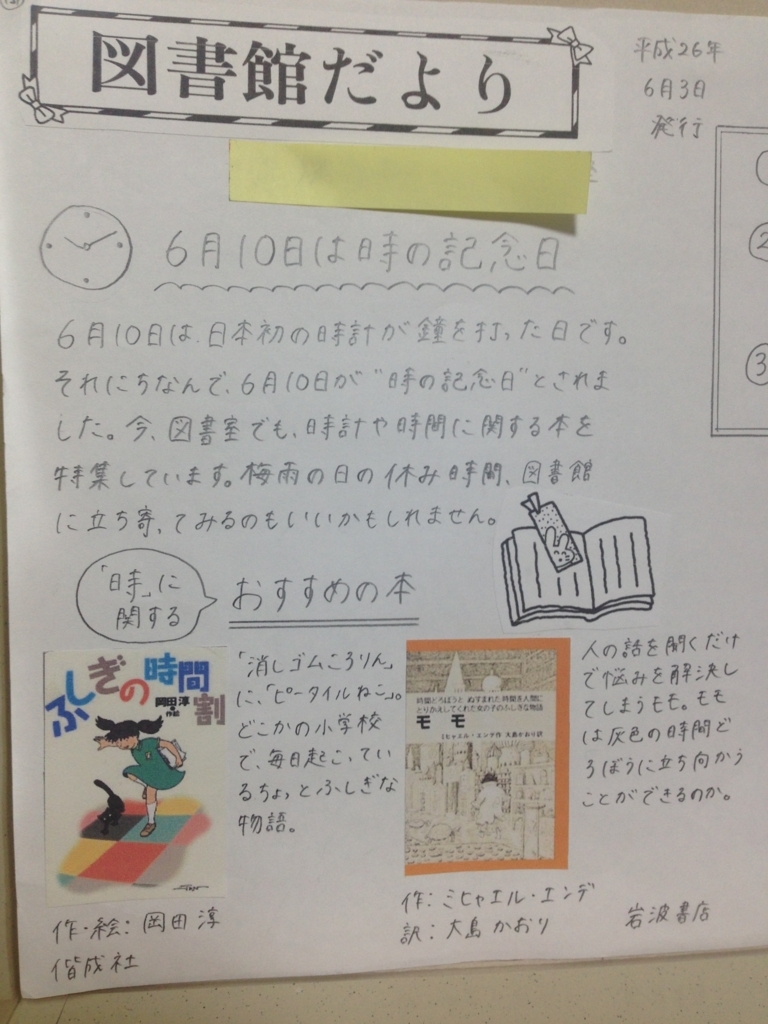 図書館だより
平成26年
6月3日
発行
6月10日は時の記念日
6月10日は、日本初の時計が鐘を打った日です。
それにちなんで、6月10日が“時の記念日”とされま
した。今、図書室でも、時計や時間に関する本を
特集しています。梅雨の日の休み時間、図書館
に立ち寄ってみるのもいいかもしれません。
「時」に
関する
おすすめの本
ふしぎの時間割
岡田淳
作絵
「消しゴムころりん」
に、「ピータイルねこ」。
どこかの小学校
で、毎日起こってい
るちょっとふしぎな
物語。
作・絵:岡田淳
偕成社
時間どろぼうと ぬすまれた時間を人間に
とりかえしてくれた女の子のふしぎな物語
モモ
ミヒャエル・エンデ作 大島かおり訳
人の話を聞くだけ
で悩みを解決し
てしまうモモ。モモ
は灰色の時間ど
ろぼうに立ち向かう
ことができるのか。
作:ミヒャエル・エンデ
訳:大島かおり
岩波書店
2
3